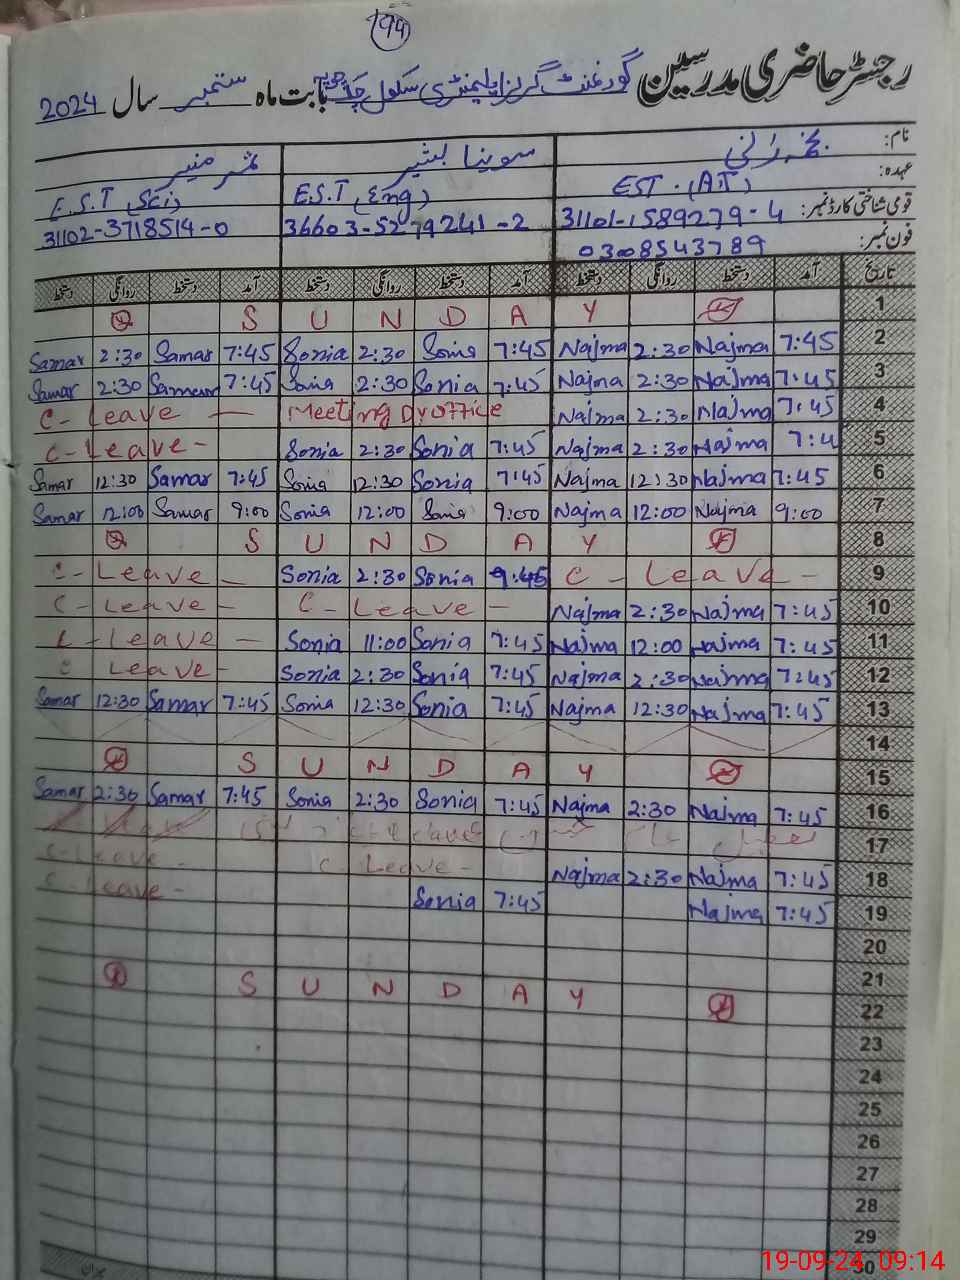 94
رجسٹر حاضری مدرسین گورنمنٹ گرلز ایلیمنٹری سکول بابت ماہ ستمبر سال 2024
نام: نجمہ رانی سونیا بشیر ثمر منیر
عہدہ: EST. (AT) E.S.T (Eng) E.S.T (Sci)
قومی شناختی کارڈ نمبر: 31101-1589279-4 36603-5279241-2 31102-3718514-0
فون نمبر: 03008543789
تاریخ آمد دستخط روانگی دستخط آمد دستخط روانگی دستخط آمد دستخط روانگی دستخط
S U N D A Y 1
Samar 2:30 Samar 7:45 Sonia 2:30 Sonia 7:45 Najma 2:30 Najma 7:45 2
Samar 2:30 Samar 7:45 Sonia 2:30 Sonia 7:45 Najma 2:30 Najma 7:45 3
C- Leave — Meeting Dy office Najma 2:30 Najma 7:45 4
C- Leave - Sonia 2:30 Sonia 7:45 Najma 2:30 Najma 7:4 5
Samar 12:30 Samar 7:45 Sonia 12:30 Sonia 7:45 Najma 12:30 Najma 7:45 6
Samar 12:00 Samar 9:00 Sonia 12:00 Sonia 9:00 Najma 12:00 Najma 9:00 7
S U N D A Y 8
C - Leave - Sonia 2:30 Sonia 9:45 C - Leave - 9
C - Leave - C - Leave - Najma 2:30 Najma 7:45 10
L - Leave — Sonia 11:00 Sonia 7:45 Najma 12:00 Najma 7:45 11
C Leave - Sonia 2:30 Sonia 7:45 Najma 2:30 Najma 7:45 12
Samar 12:30 Samar 7:45 Sonia 12:30 Sonia 7:45 Najma 12:30 Najma 7:45 13
14
S U N D A Y 15
Samar 2:30 Samar 7:45 Sonia 2:30 Sonia 7:45 Najma 2:30 Najma 7:45 16
تعطیل عام 17
C - Leave - C Leave - Najma 2:30 Najma 7:45 18
C - Leave - Sonia 7:45 Najma 7:45 19
20
21
S U N D A Y 22
23
24
25
26
27
28
29
30
19-09-24 09:14